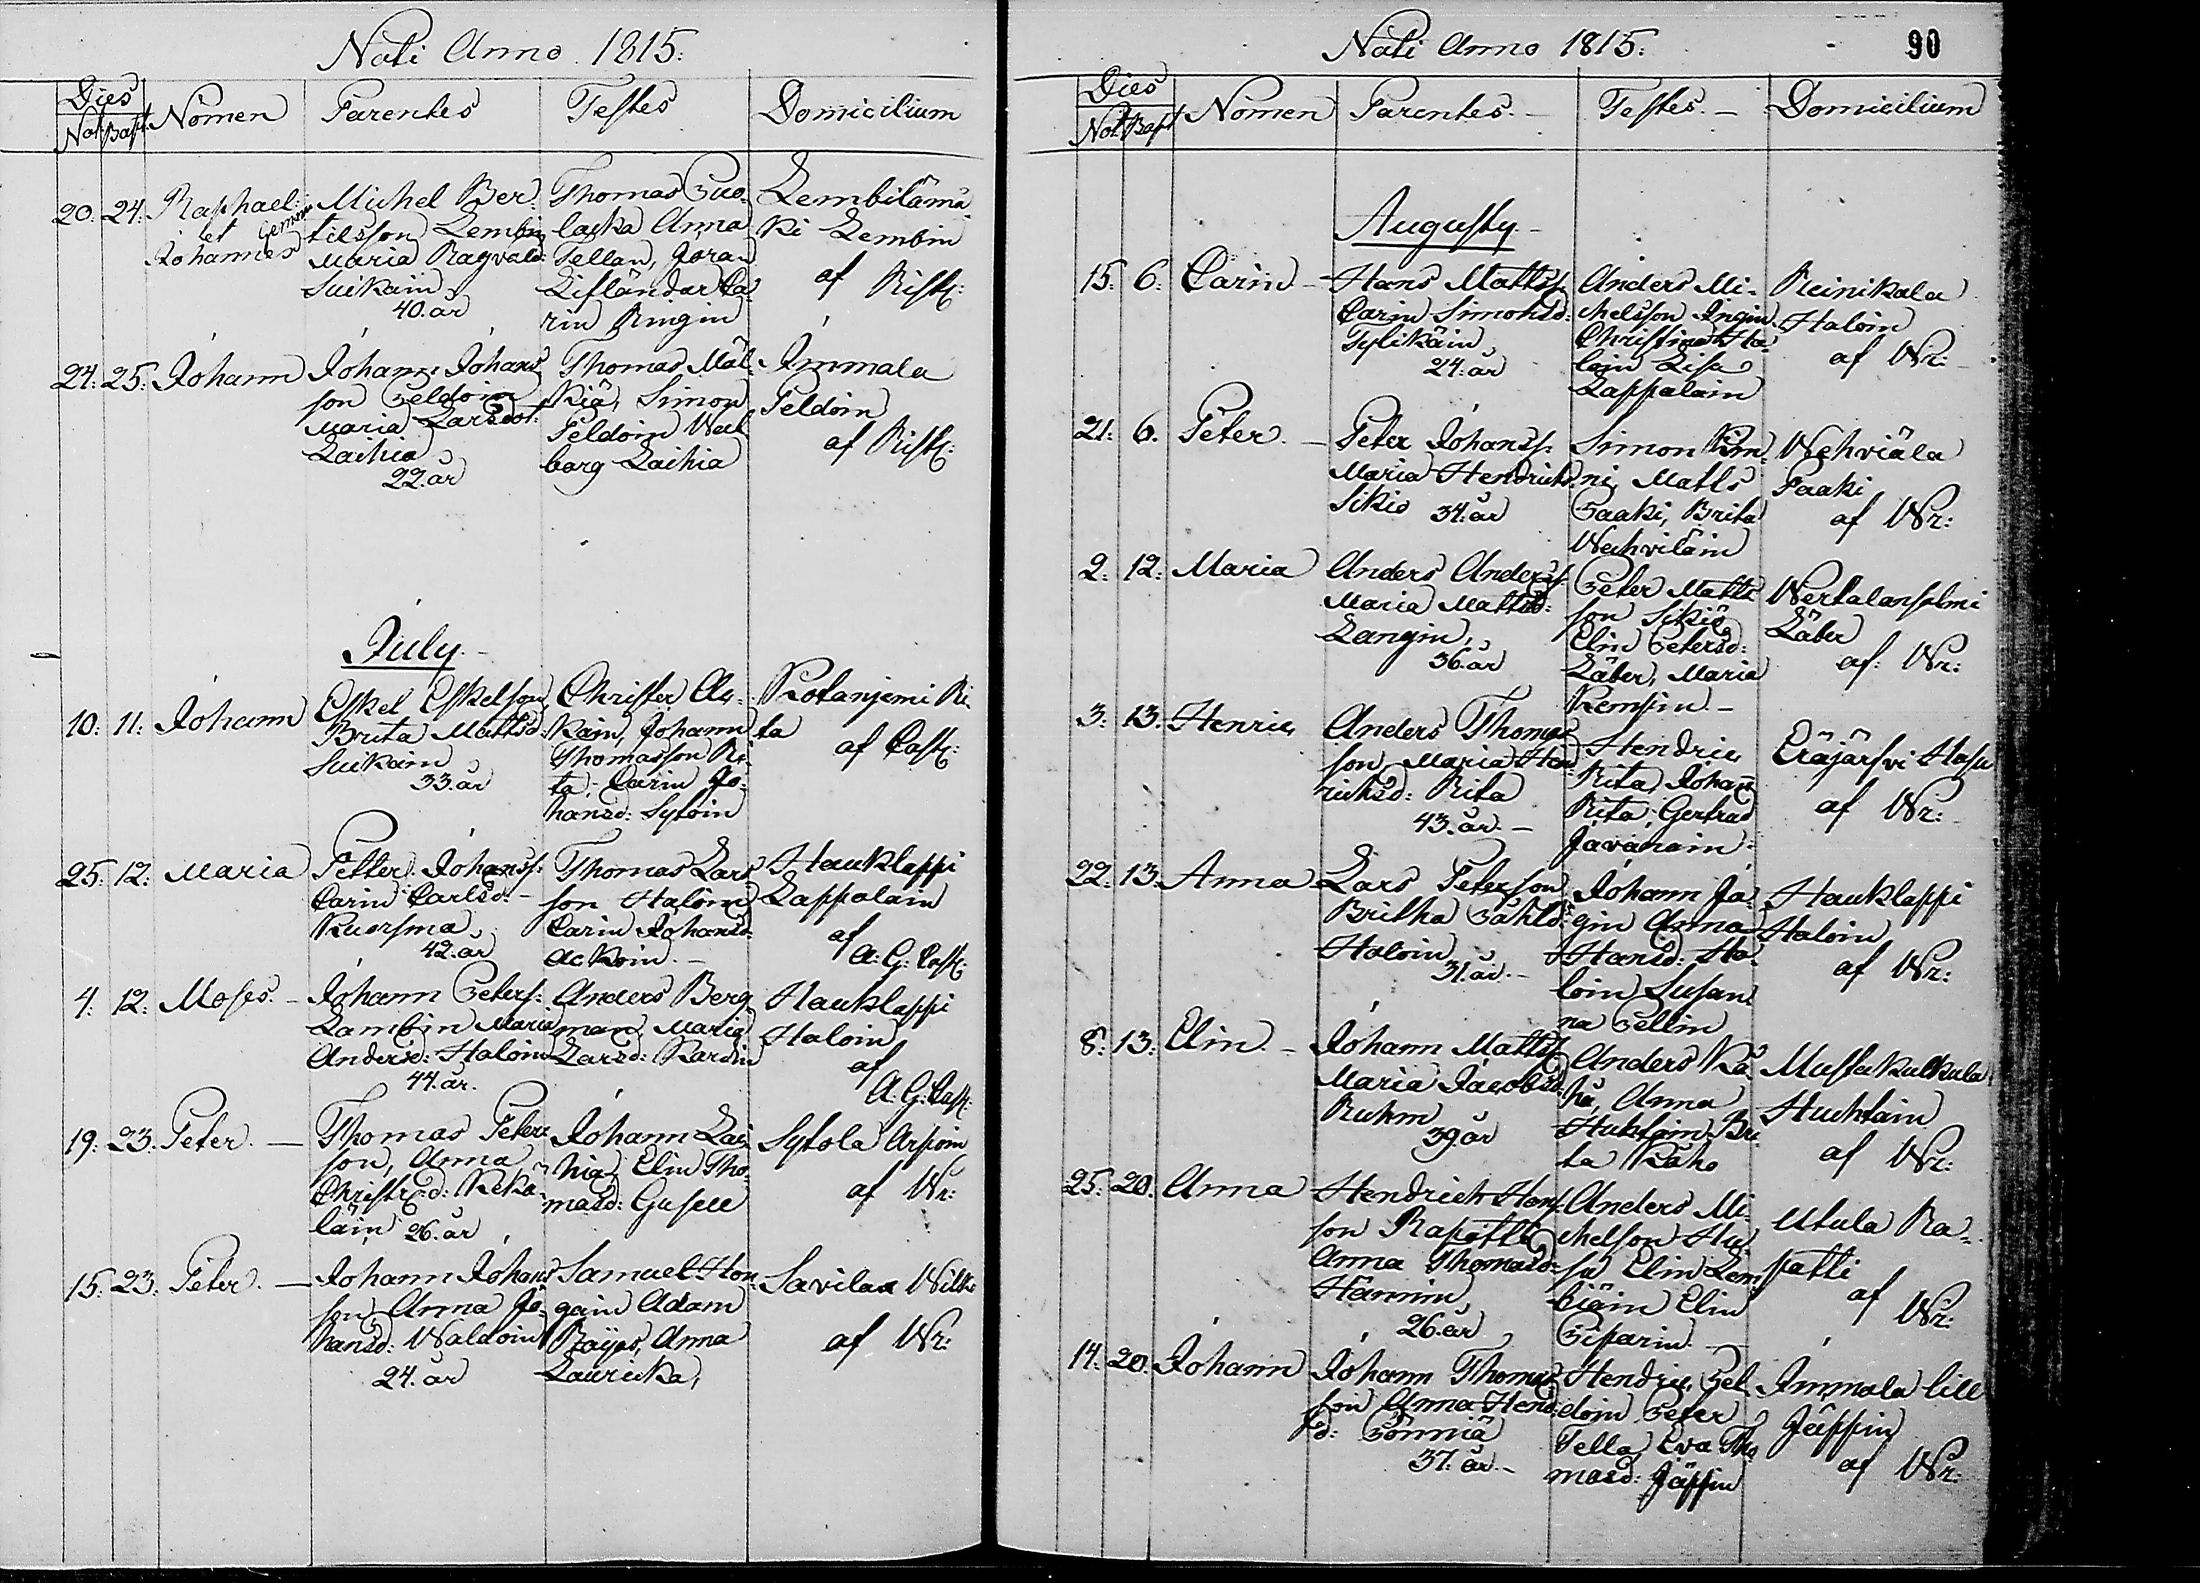 Nati Anno 1815:
Dies
Nat: Bapt: Nomen Parentes Testes Domicilium
20: 24: Raphael: et Gemini Johannes
Michel Ber
tilsson Lembin
Maria Ragvald:
Suikain
40. år
Thomas
laska Anna
Tellan, Joran
Lifländar Ca
rin Ringin
Lembilämä
ki Lembin
af Ristk:
24: 25: Johann
Johann Johans
son Peldoin
Maria Larsdot:
Laihia
22. år
Thomas Mäl
kiä, Simon
Peldoin Wal
borg Laihia
Immala
Peldoin
af Ristk:
July
10: 11: Johann
Eskel Eskelson
Brita Mattsd:
Suikain
33. år
Christer As
kain, Johann
Thomasson Ri
ta, Carin Jo
hansd: Sytoin
Kotanjemi Ri
ta
af Cask:
25: 12: Maria
Petter Johanss:
Carin Carlsd:
Kuorsma
42. år
Thomas Lars
son Haloin
Carin Johansd:
Ackoin
Hauklappi
Lappalain
af
A: G: Cask:
4: 12: Moses
Johann Peters:
Lambin Maria
Andersd: Haloin
44. år.
Anders Berg
man, Maria
Larsd: Kardin
Hauklappi
Haloin
af
A: G: Cask:
19: 23: Peter
Thomas Peters
son, Anna
Christ:d: Keka
läin 26. år
Johann Lai
hia, Elin Tho
masd: Gusell
Sytola Arpoin
af Wr:
15: 23: Peter
Johann Johans
son, Anna Jo
hansd: Waldoin
24. år
Samuel Hon
gain Adam
Räyps, Anna
Lauricka,
Savilax Wilke
af Wr:
Nati Anno 1815: 90
Dies
Nat: Bapt Nomen Parentes Testes Domicilium
Augusty
15: 6: Carin
Hans Matts:
Carin Simonsd:
Tylikäin
24. år
Anders Mi
chelsson Ingin
Christina Ha
loin Lisa
Lappalain
Reinikala
Haloin
af Wr:
21: 6. Peter
Peter Johanss:
Maria Hendricks
Sikiö 34. år
Simon Kin
ni, Matts
Paaki, Brita
Wehviläin
Wehviäla
Paaki
af Wr:
2: 12: Maria
Anders Anders:
Maria Mattsd:
Langin,
36. år
Peter Matts
son Sikiö
Elin Petersd:
Läber, Maria
Kempin
Wertalansalmi
Läber
af: Wr:
3: 13: Henric
Anders Thomas
son, Maria Hen
richsd: Rita
43. år
Hendric
Rita, Johan
Rita, Gertrud
Jävänäin
Eräjärfvi Hasu
af Wr:
22: 13. Anna
Lars Peterson
Britha Påhlsd:
Haloin
31. år
Johann Ja
gin Anna
Hansd: Ha
loin Susan
na Pellin
Hauklappi
Haloin
af Wr:
8: 13: Elin
Johann Matts:
Maria Jacobsd:
Ruhm
39. år
Anders Kä
hä, Anna
Huhtain Bri
ta Kaho
Mustakulkula
Huchtain
af Wr:
25: 20. Anna
Hendrich Hans
son Rapatti
Anna Thomasd:
Hannin
26. år
Anders Mi
chelson Hu
su Elin Lem
biäin Elin
Piparin
Utula Ra
patti
af Wr:
14: 20. Johann
Johann Thomas
son Anna Hend
sd: Pönniä
37. år
Hendric Pel
doin Peter
Tella, Eva Tho
masd: Jäppin
Immala lill
Jäppin
af Wr: